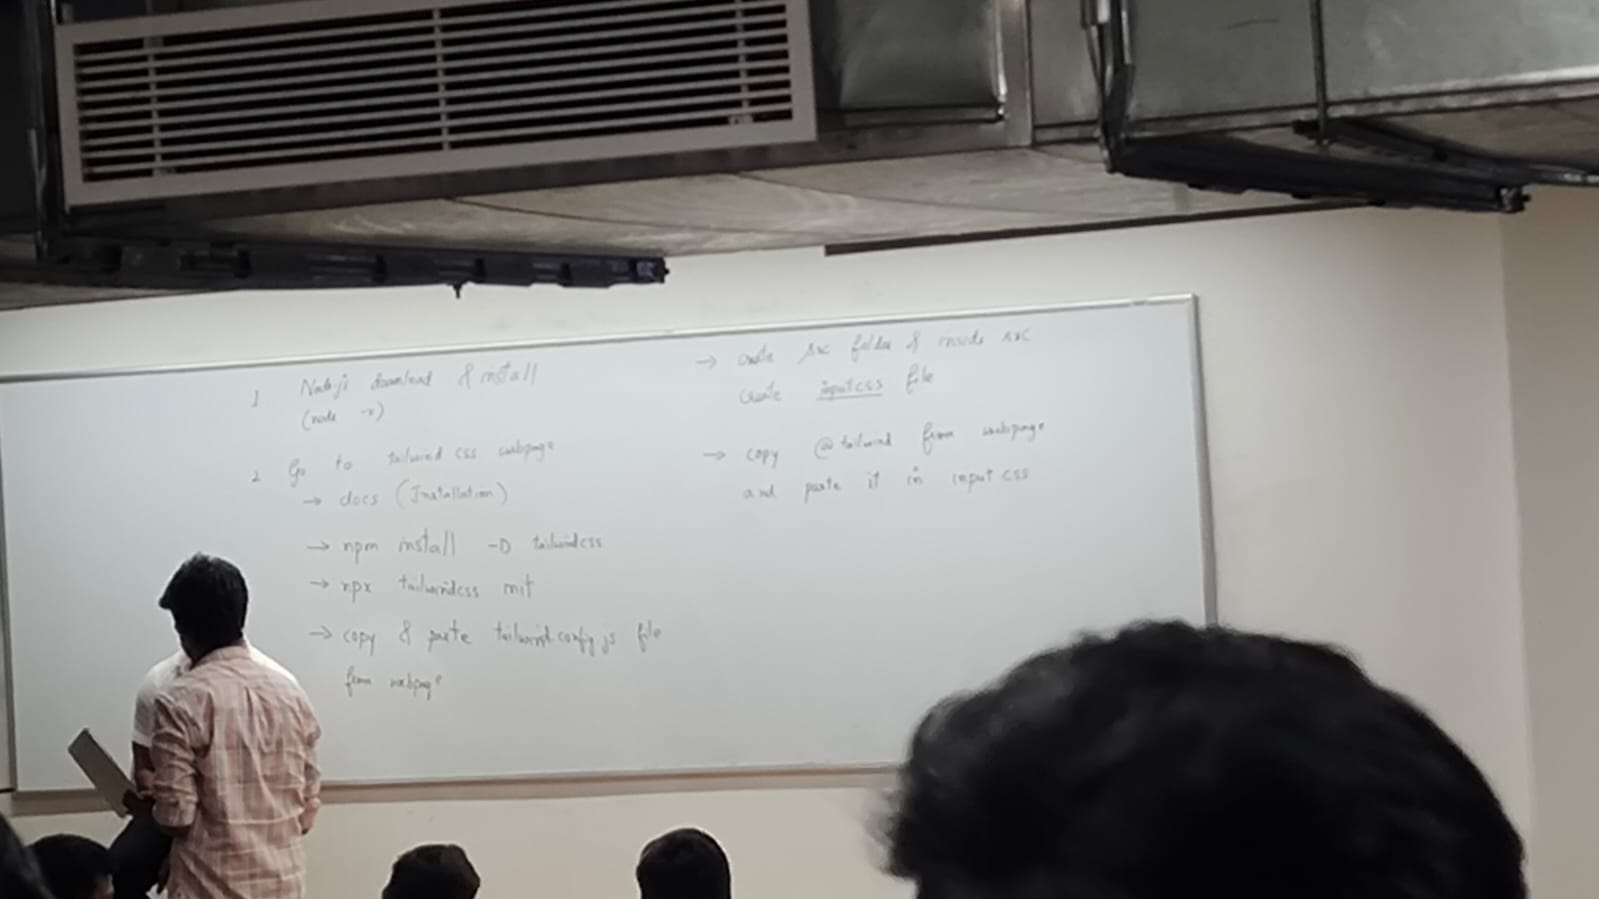 1 Nodejs download & install
(node -v)
2 Go to tailwind css webpage
→ docs (Installation)
→ npm install -D tailwindcss
→ npx tailwindcss init
→ copy & paste tailwind.config.js file
from webpage
→ create src folder & inside src
create input css file
→ copy @tailwind from webpage
and paste it in input css